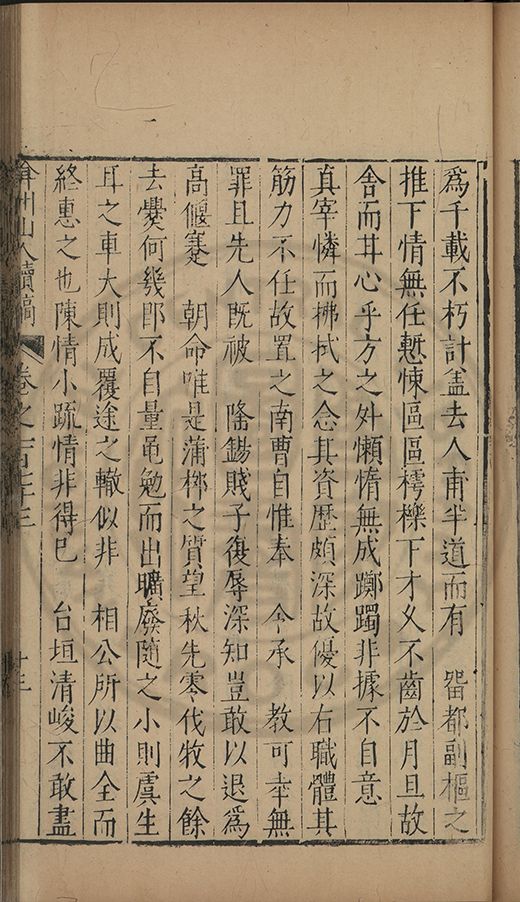 為千載不朽計盖去人甫半道而有　畱都副樞之
推下情無任慙悚區區樗櫟下才久不齒於月旦故
舍而其心乎方之外懶惰無成躑躅非據不自意
真宰憐而拂拭之念其資歷頗深故優以右職體其
筋力不任故置之南曹自惟奉　令承　教可幸無
罪且先人既被　隆錫賤子復辱深知豈敢以退為
高偃蹇　朝命唯是蒲柳之質望秋先零伐牧之餘
去爨何幾即不自量黽勉而出曠廢隨之小則虞生
耳之車大則成覆途之轍似非　相公所以曲全而
終惠之也陳情小疏情非得已　台垣清峻不敢盡
弇州山人續稿　卷之一百七十三　十三